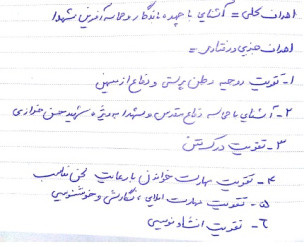 اهداف کلی = آشنایی با چهره ماندگار و حماسه آفرین شهدا
اهداف جزیی و رفتاری =
۱- تقویت روحیه وطن پرستی و دفاع از میهن
۲- آشنایی با حماسه دفاع مقدس و شهدا به ویژه شهید حسن خرازی
۳- تقویت درک متن
۴- تقویت مهارت خواندن با رعایت لحن مناسب
۵- تقویت مهارت املایی، نگارشی و خوشنویسی
۶- تقویت انشاء نویسی